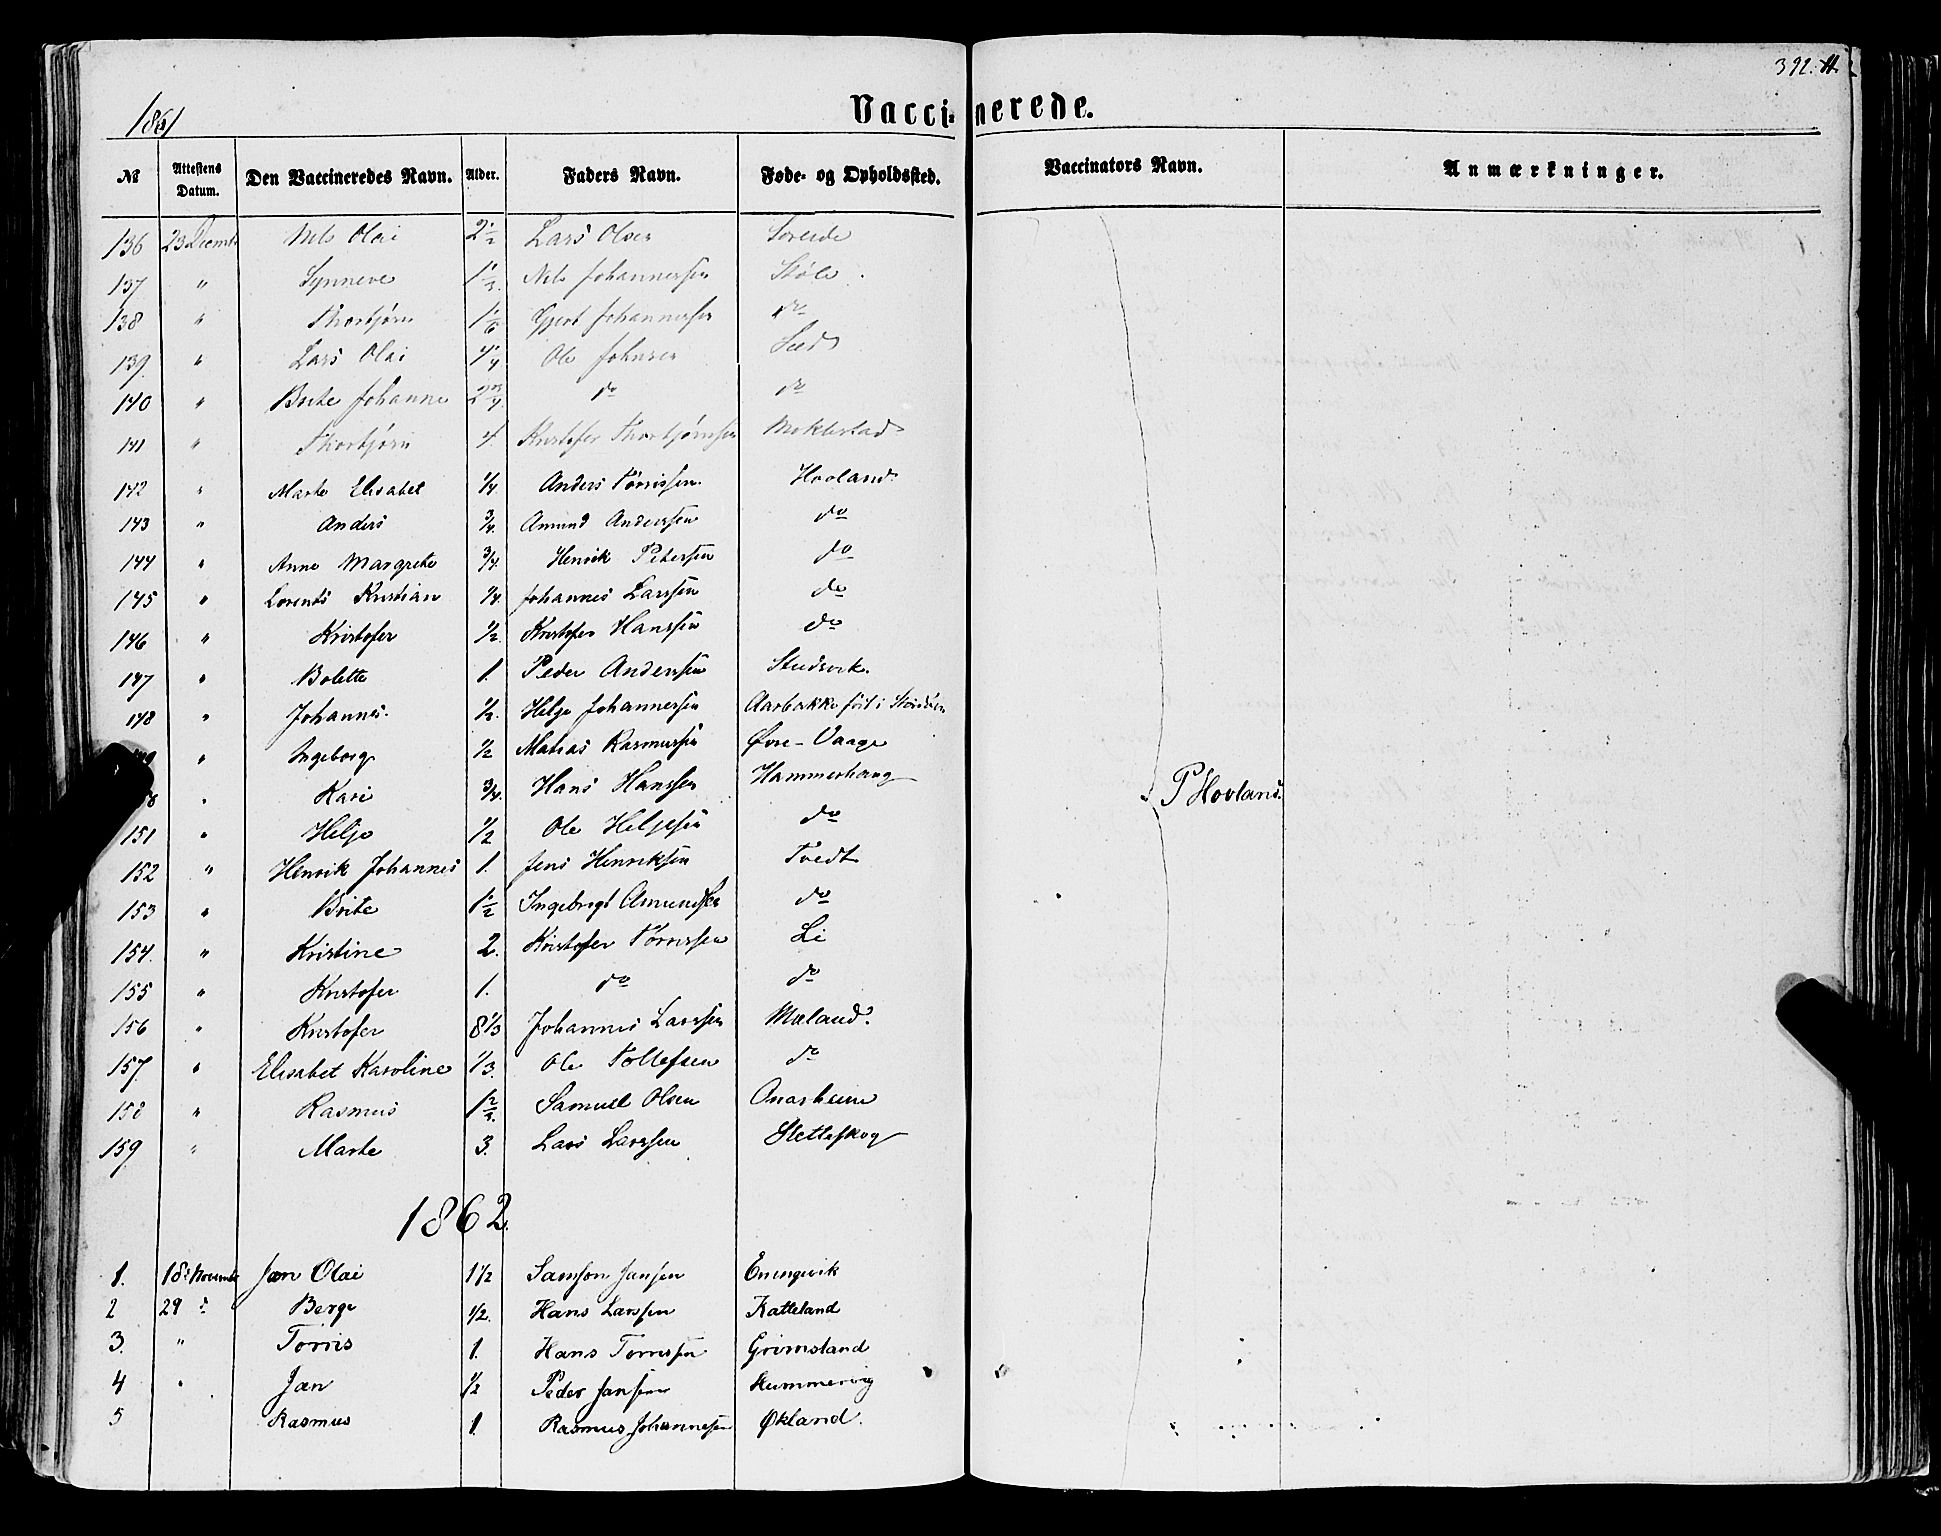 392.
1861
Vaccinerede.
№ Attestens Datum. Den Vaccineredes Navn. Alder. Faders Navn. Føde- og Opholdssted. Vaccinators Navn. Anmærkninger.
136 23 Decemb Nels Olai 2 1/2 Lars Olsen Søreide
137 " Synneve 1 1/3. Nels Johannessen Støle
138 " Thorbjørn 1 1/6 Gjert Johannessen do
139 " Lars Olai 4 1/4 Ole Johnsen
140 " Brite Johanne 2 3/4. do do
141 " Thorbjørn 4. Kristofer Thorbjørnsen Moklestad
142 " Marte Elisabet 1/4. Anders Tørrissen. Hovland.
143 " Anders 3/4. Amund Anderssen do
144 " Anne Margrete 3/4. Henrik Peterssen do
145 " Lorents Kristian 1/4. Johannes Larssen do
146 " Kristofer 1/2. Kristofer Hanssen do
147 " Bolette 1. Peder Anderssen Studsvik.
148 " Johannes. 1/2. Helge Johannessen Aarbakke
" Ingeborg 1/2 Matias Rasmussen Øvre-Vaage
" Kari 3/4. Hans Hanssen Hammerhaug P Hovland.
151 " Helje 1/2 Ole Heljesen do
152 " Henrik Johannes 1. Jens Henriksen Tvedt
153 " Brite 1 1/2 Ingebrigt Amundsen do
154. " Kristine 2. Kristofer Tørrissen Li
155 " Kristofer 1. do do
156 " Kristofer 8 1/3 Johannes Larssen Mæland.
157. " Elisabet Karoline 1/3. Ole Tollefsen do
158 " Rasmus Samuel Olsen
159. " Marte 3. Lars Larssen Sletteskog
1862.
1. 18. Novemb Jan Olai 1 1/2 Samson Jansen Eningevik
2 29 " Berge 1/2. Hans Larssen Katteland
3. " Tørris 1. Hans Tørrissen Grimsland
4 " Jan 1/2 Peder Jansen
5 Rasmus 1. Rasmus Johannesen Økland.